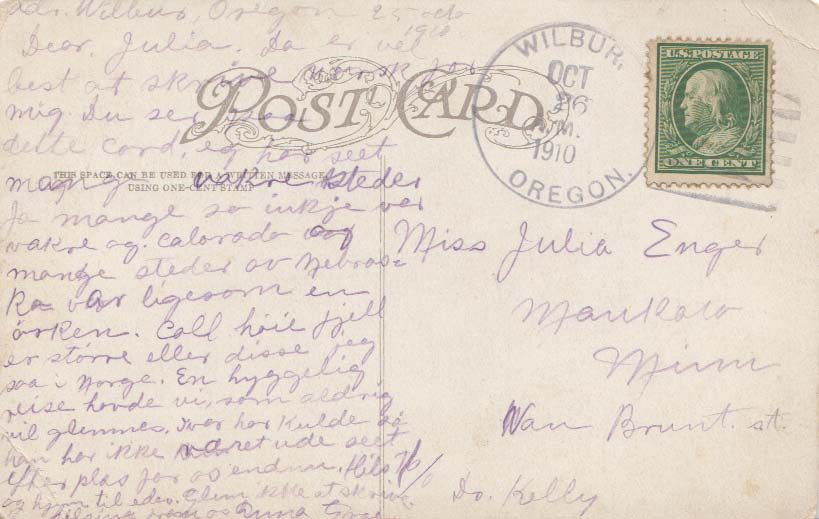 Wilbur, Oregon 25 octo
1910
Dear Julia. Da er vel
best at skrive norsk for
mig. Du ser paa
dette card, eg har seet
mange vakre steder
Ja mange so inkje var
vakre og. Calorado og
mange steder av Nebras-
ka var ligesom en
örken. Coll höie fjell
er större eller disse jeg
saa i Norge. En hyggelig
reise havde vi, som aldrig
vil glemmes. Ivar har kulde så
han har ikke været ude seet
efter plas for os endnu. Hils
og hjem til eder. Glem ikke at skrive.
Anna
POST CARD
THIS SPACE CAN BE USED FOR WRITTEN MESSAGE
USING ONE-CENT STAMP
WILBUR,
OCT
26
A.M.
1910
OREGON.
U.S. POSTAGE
ONE CENT
Miss Julia Enger
Mankato
Minn
Van Brunt. st.
% Do. Kelly